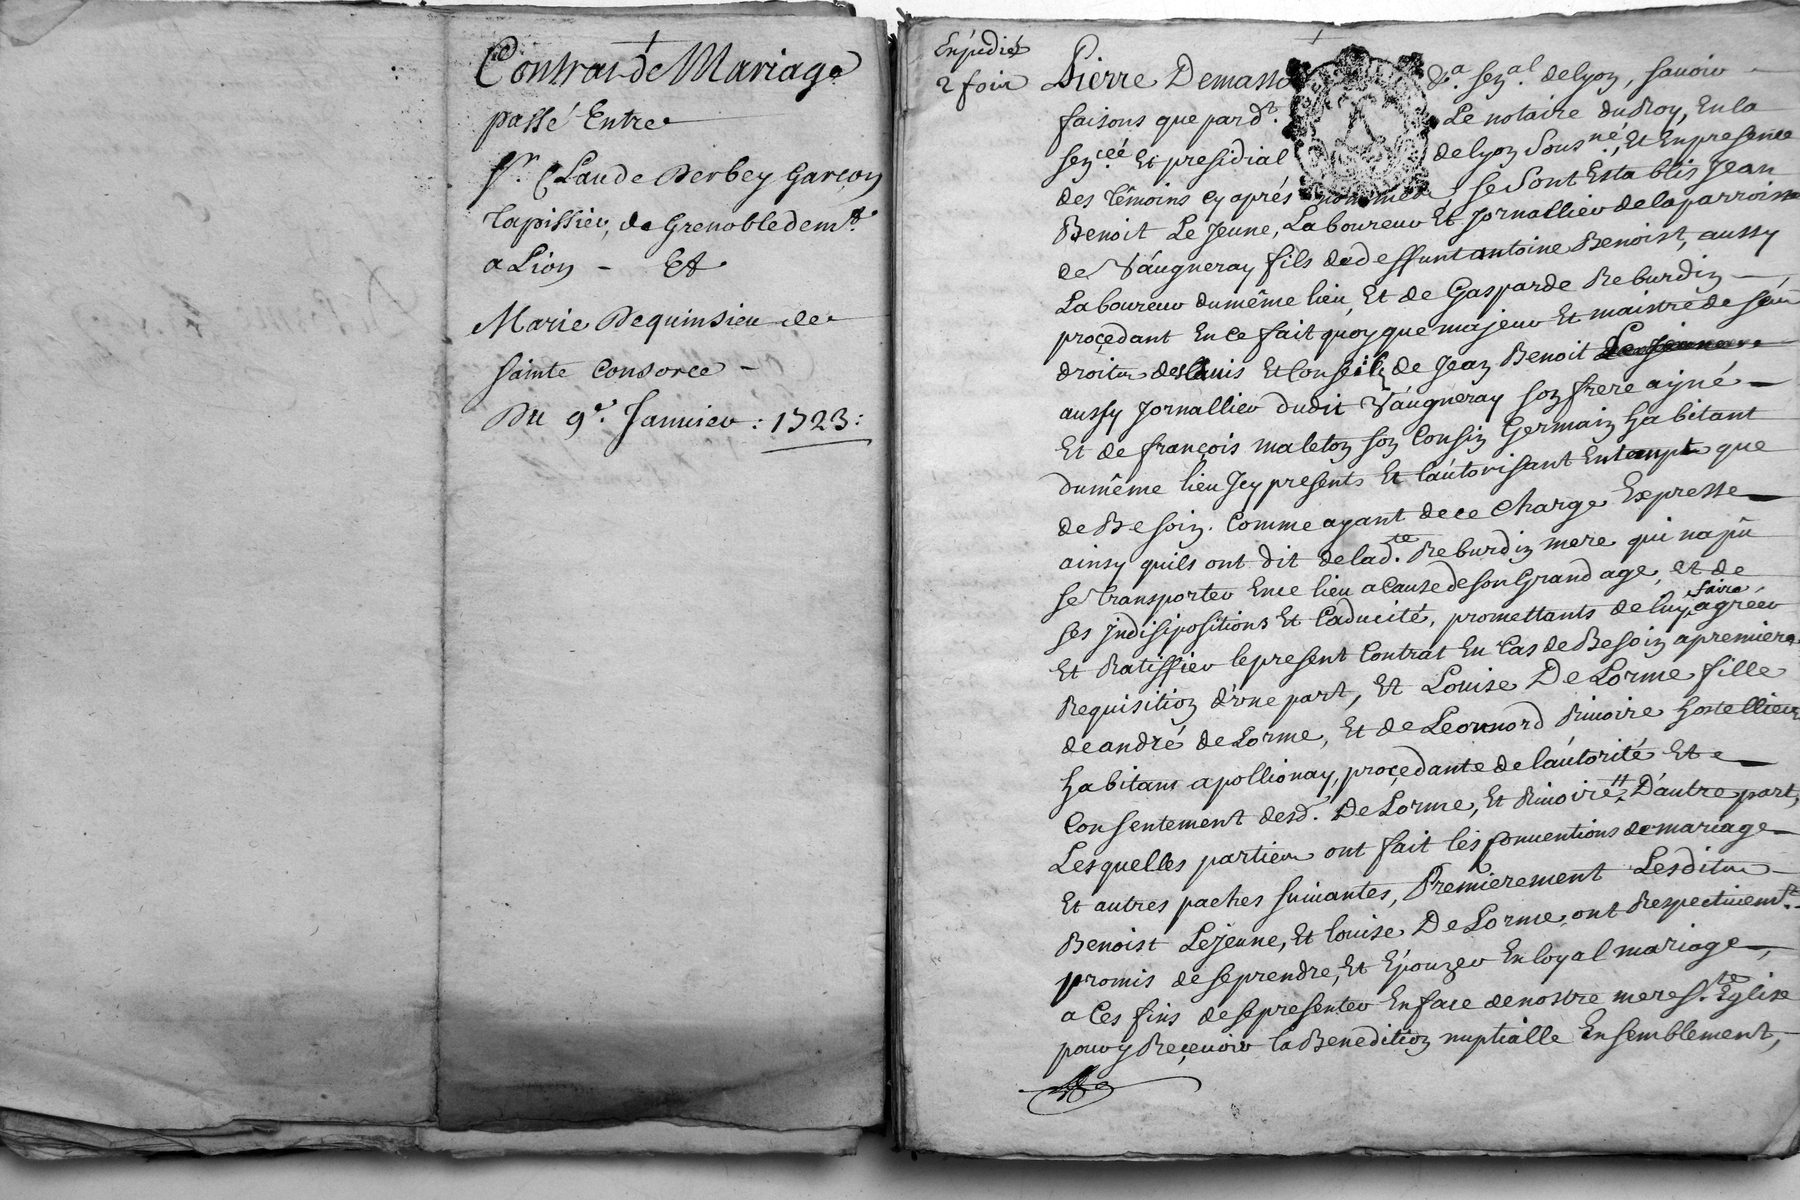 Contrat de Mariage
passé Entre
Sr. Claude Derbey Garçon
Tapissier, de Grenoble demt.
a Lion - Et
Marie Dequinsieu de
sainte Consorce -
Du 9e. Janvier : 1723 :
Expedié
2 fois
Pierre Demasso
da. senal. de lyon, savoir
faisons que par dt.
Le notaire du Roy, En la
sencée Et presidial
de lyon sousné, Et En presence
des témoins cy aprés nommés
se sont Establis Jean
Benoit Le Jeune, Laboureur Et Jornallier de la parroisse
de Vaugneray fils de deffunt antoine Benoist, aussy
Laboureur du même lieu, Et de Gasparde Reburdin
proçedant En ce fait quoy que majeur Et maistre de ses
droits de lavis Et Conseil de Jean Benoit
aussy Jornallier dudit Vaugneray son frere ainé
Et de françois maleton son Cousin Germain habitant
du même lieu Icy presents Et l'autorisant Entempt que
de Besoin. Comme ayant de ce Charge Expresse
ainsy quils ont dit de lad.te Reburdin mere qui na pû
se transporter En ce lieu a Cause de son Grand age, et de
ses Indisipositions Et Caducité, promettants de luy faire agréer
Et Ratiffier le present Contrat En Cas de Besoin a premiere
Requisition d'une part, Et Louise De Lorme fille
de andré de Lorme, Et de Leonnord Rivoire hostelliers
habitans a pollionay, proçedante de l'autorité Et
Consentement desd. De Lorme, Et Rivoire, D'autre part,
Lesquelles parties ont fait les Conventions de mariage
Et autres paches suivantes, Premierement Lesdits
Benoist Lejeune, Et louise De Lorme, ont Respectivemt.
promis de se prendre, Et Épouzer En loyal mariage,
a Ces fins de se presenter En face de nostre mere Ste. Eglise
pour y Reçevoir la Benedition nuptialle Ensemblement,